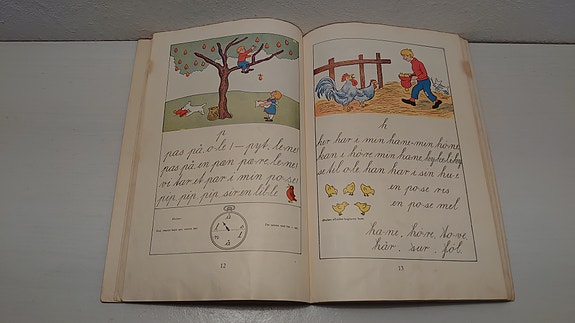 p
pas på, o-le! – pyt, le-ne!
pas på, en pæn pæ-re, le-ne!
vi tar et par i min po-se!
pip, pip, pip, sir en lil-le
12
h
her har i min ha-ne, min hø-ne
kan i hø-re min ha-ne,
se til o-le han har i sin hu-e
en po-se ris
en po-se mel
ha-ne, hø-re, to-ve
hår, sur, føl.
13